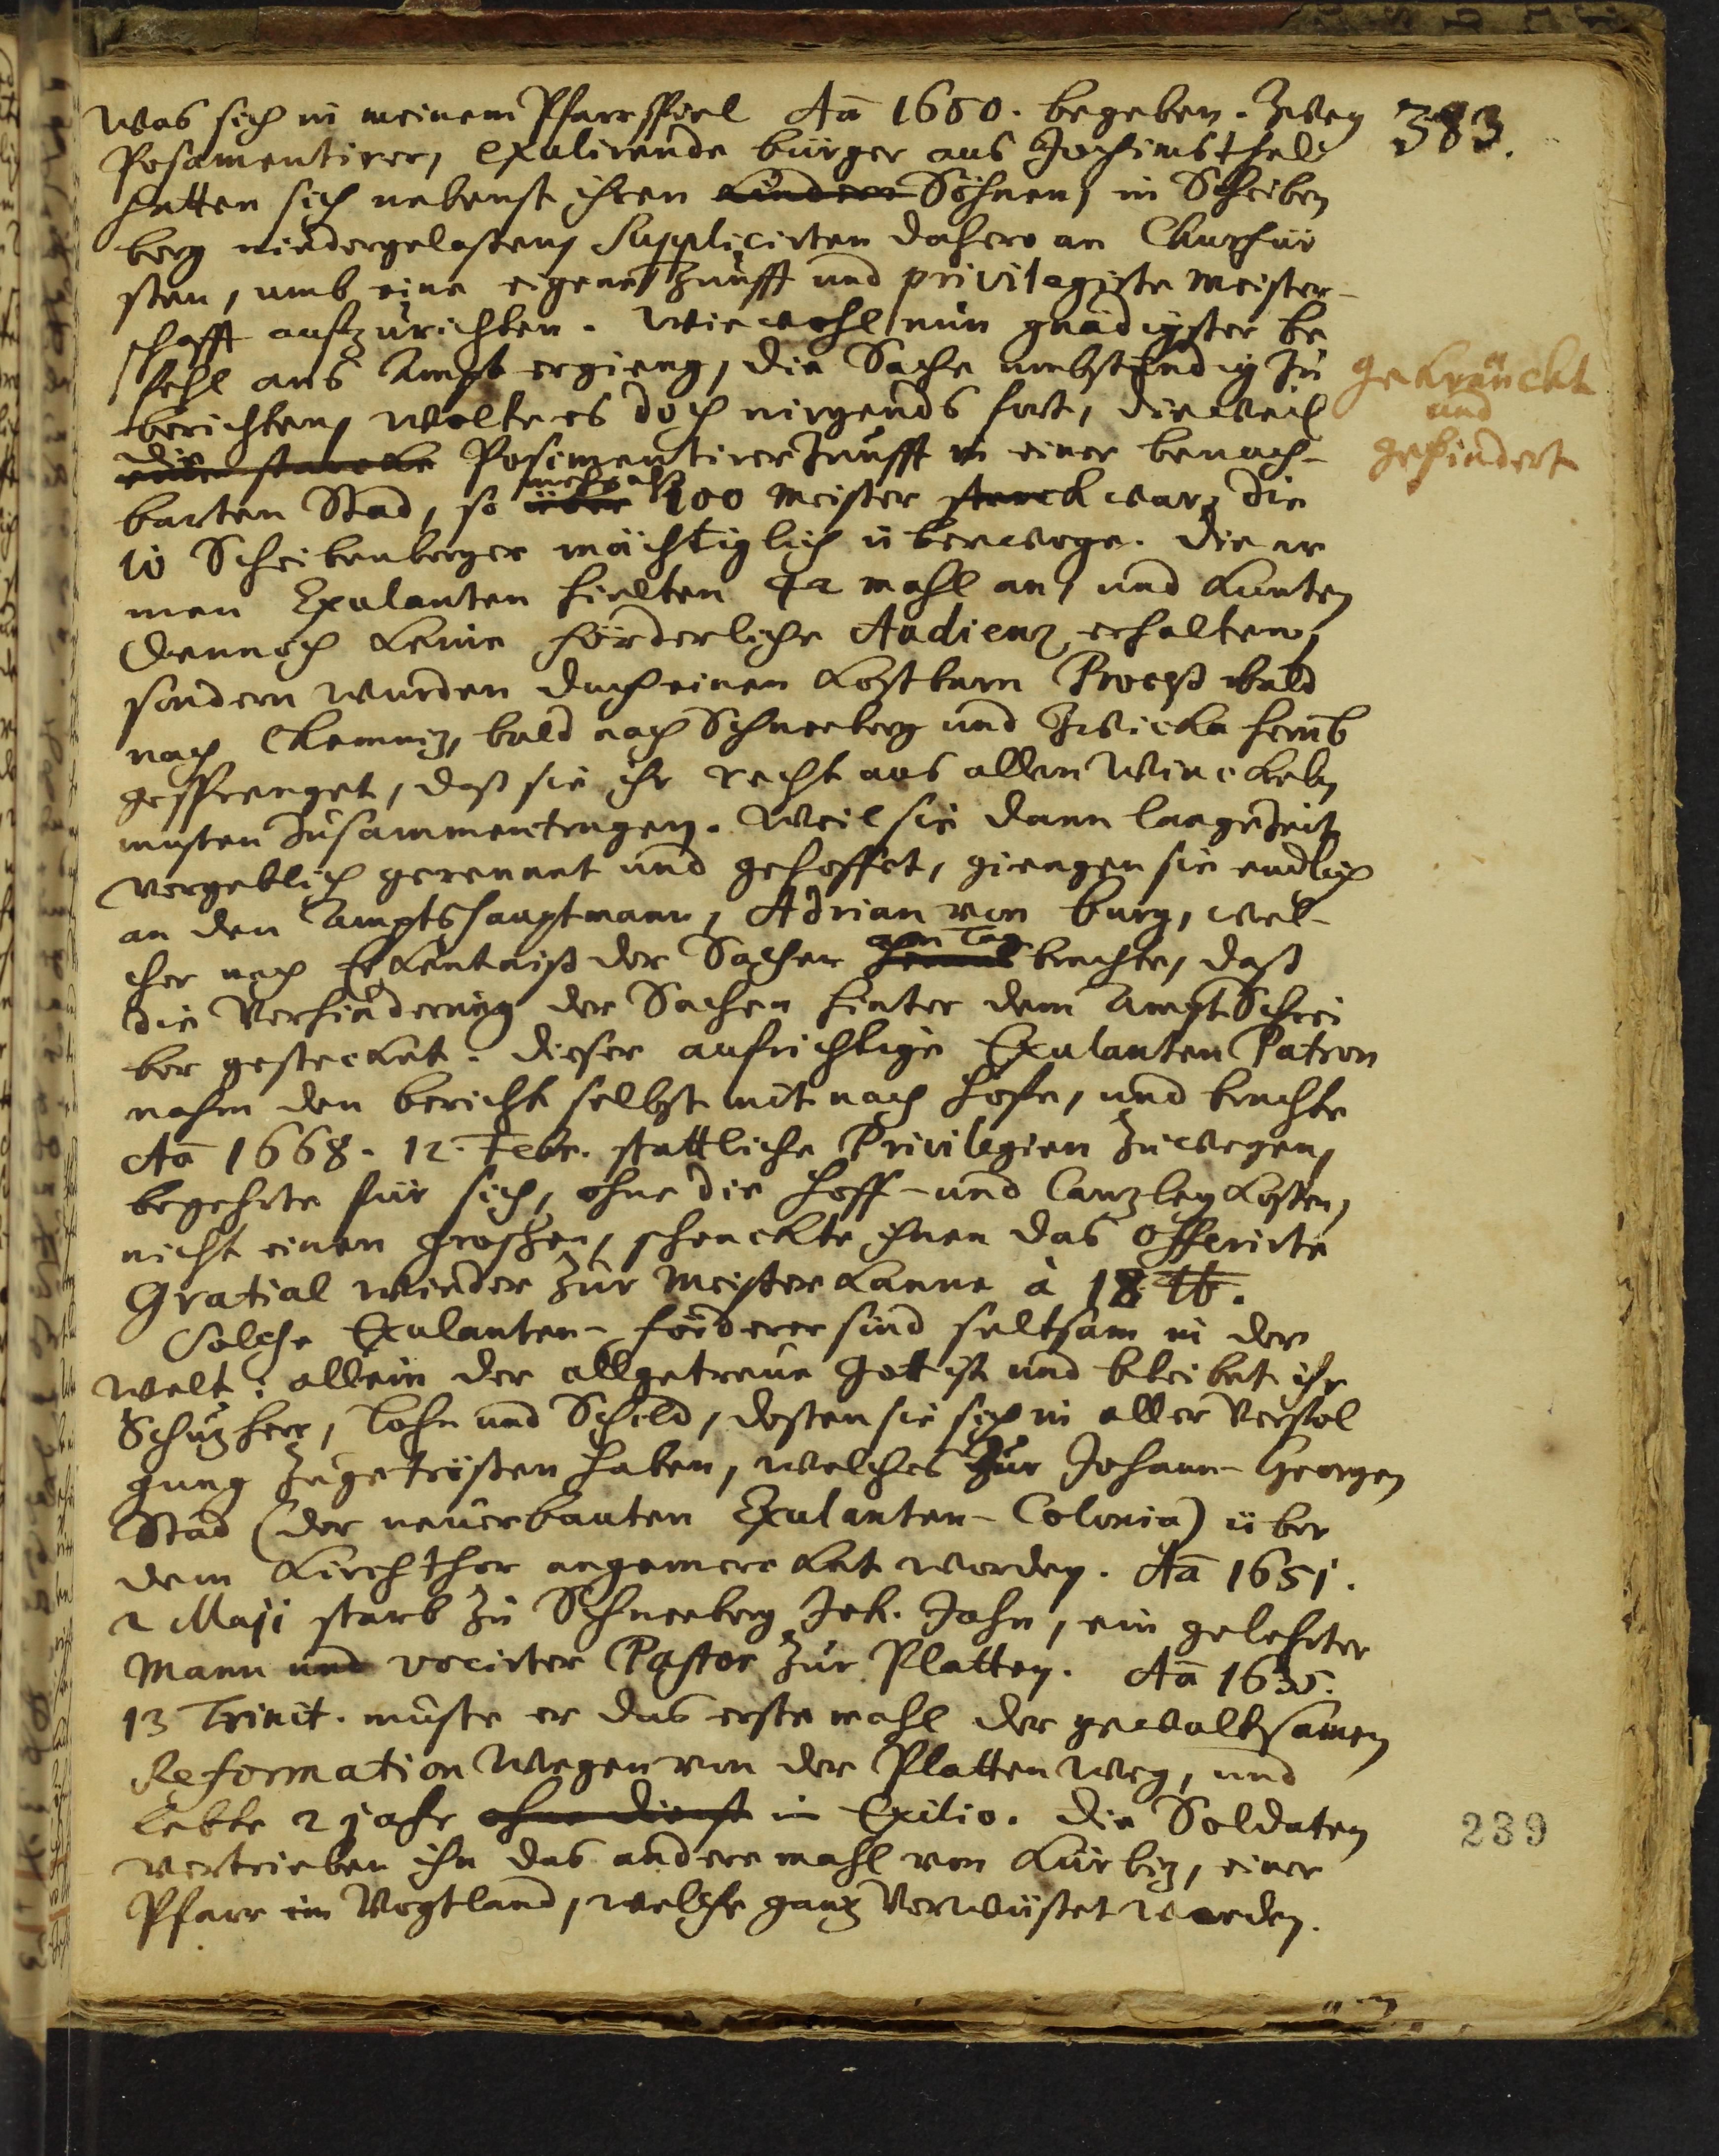 Was sich in meinem Pfarrspiel Aō 1660. begeben. Zwey
Posamentirer, exulirende bürger aus Jochimsthal
383.
hatten sich nebenst ihren kindern Söhnen, in Scheiben
berg niedergelaßen, Supplicirten dahero an Churfür
sten, umb eine eigene Zunfft und privilegirte Meister-
schafft auffzurichten. Wiewohl nun gnädigster be
fehl ans Ampt ergieng, die Sache umbständig zu
berichten, wolte es doch nirgends fort, dieweil
gekränckt
und
gehindert
die
eine starcke Posimentirer Zunfft in einer benach-
mehr als
barten Stad, so über 100 Meister starck war, die
10 Scheibenberger mächtiglich überwoge. Die ar
men Exulanten hielten 42 mahl an, und kunten
dennoch keine förderliche Audienz erhalten,
sondern wurden durch einen kostbarn Proceß bald
nach Chemniz, bald nach Schneeberg und Zwicka herumb
gesprenget, daß sie ihr recht aus allen Winckeln
musten zusammentragen. Weil sie dann lange Zeit
vergeblich gerennet und gehoffet, giengen sie endlich
an den Amptshauptmann, Adrian von burg, wel-
an Tag
cher nach erkentniß der Sachen heraus brachte, daß
die Verhinderung der Sachen hinter dem AmptSchrei
ber gestecket. Dieser aufrichtige Exulanten Patron
nahm den bericht selbst mit nach Hofe, und brachte
Aō 1668. 12. Febr. stattliche Privilegien zuwegen,
begehrte für sich, ohne die Hoff- und Canzley kosten,
nicht einen groschen, schenckte ihnen das offerirte
Gratial wieder zur Meister kanne à 18 ℔.
Solche Exulanten-förderer sind seltsam in der
Welt: allein der allgetreue Gott ist und bleibet ihr
Schuzherr, Lohn und Schild, deßen sie sich in aller Verfol
gung zugetrösten haben, welches zur Johann-Georgen
Stad (der neuerbauten Exulanten-Colonia) über
dem Kirchthor angemercket worden. Aō 1651.
2 Maji starb zu Schneeberg Joh. Jahn, ein gelehrter
Mann und vocirter Pastor zur Platten. Aō 1635.
13 Trinit. muste er das erste mahl der gewaltsamen
Reformation wegen von der Platten weg, und
lebte 2 jahr ohne dienst in Exilio. Die Soldaten
vertrieben ihn das andere mahl von Kürbiz, einer
Pfarr im Vogtland, welche ganz Verwüstet worden.
239